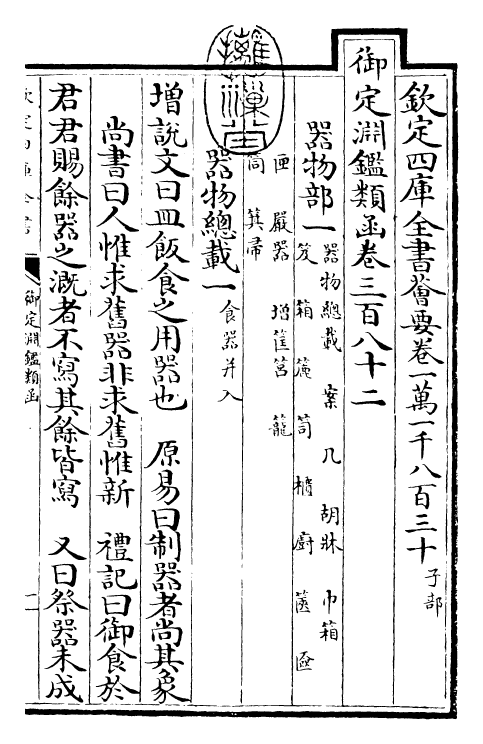 欽定四庫全書薈要卷一萬一千八百三十 子部
御定淵鑑類函卷三百八十二
器物部一 器物總載 案 几 胡牀 巾箱
笈 箱 簏 笥 廚 篋 匳
匣 嚴器 增筐筥 籠
筒 箕帚
器物總載一 食器并入
增說文曰皿飯食之用器也 原易曰制器者尚其象
尚書曰人惟求舊器非求舊惟新 禮記曰御食於
君君賜餘器之溉者不寫其餘皆寫 又曰祭器未成
欽定四庫全書
御定淵鑑類函
摛藻堂